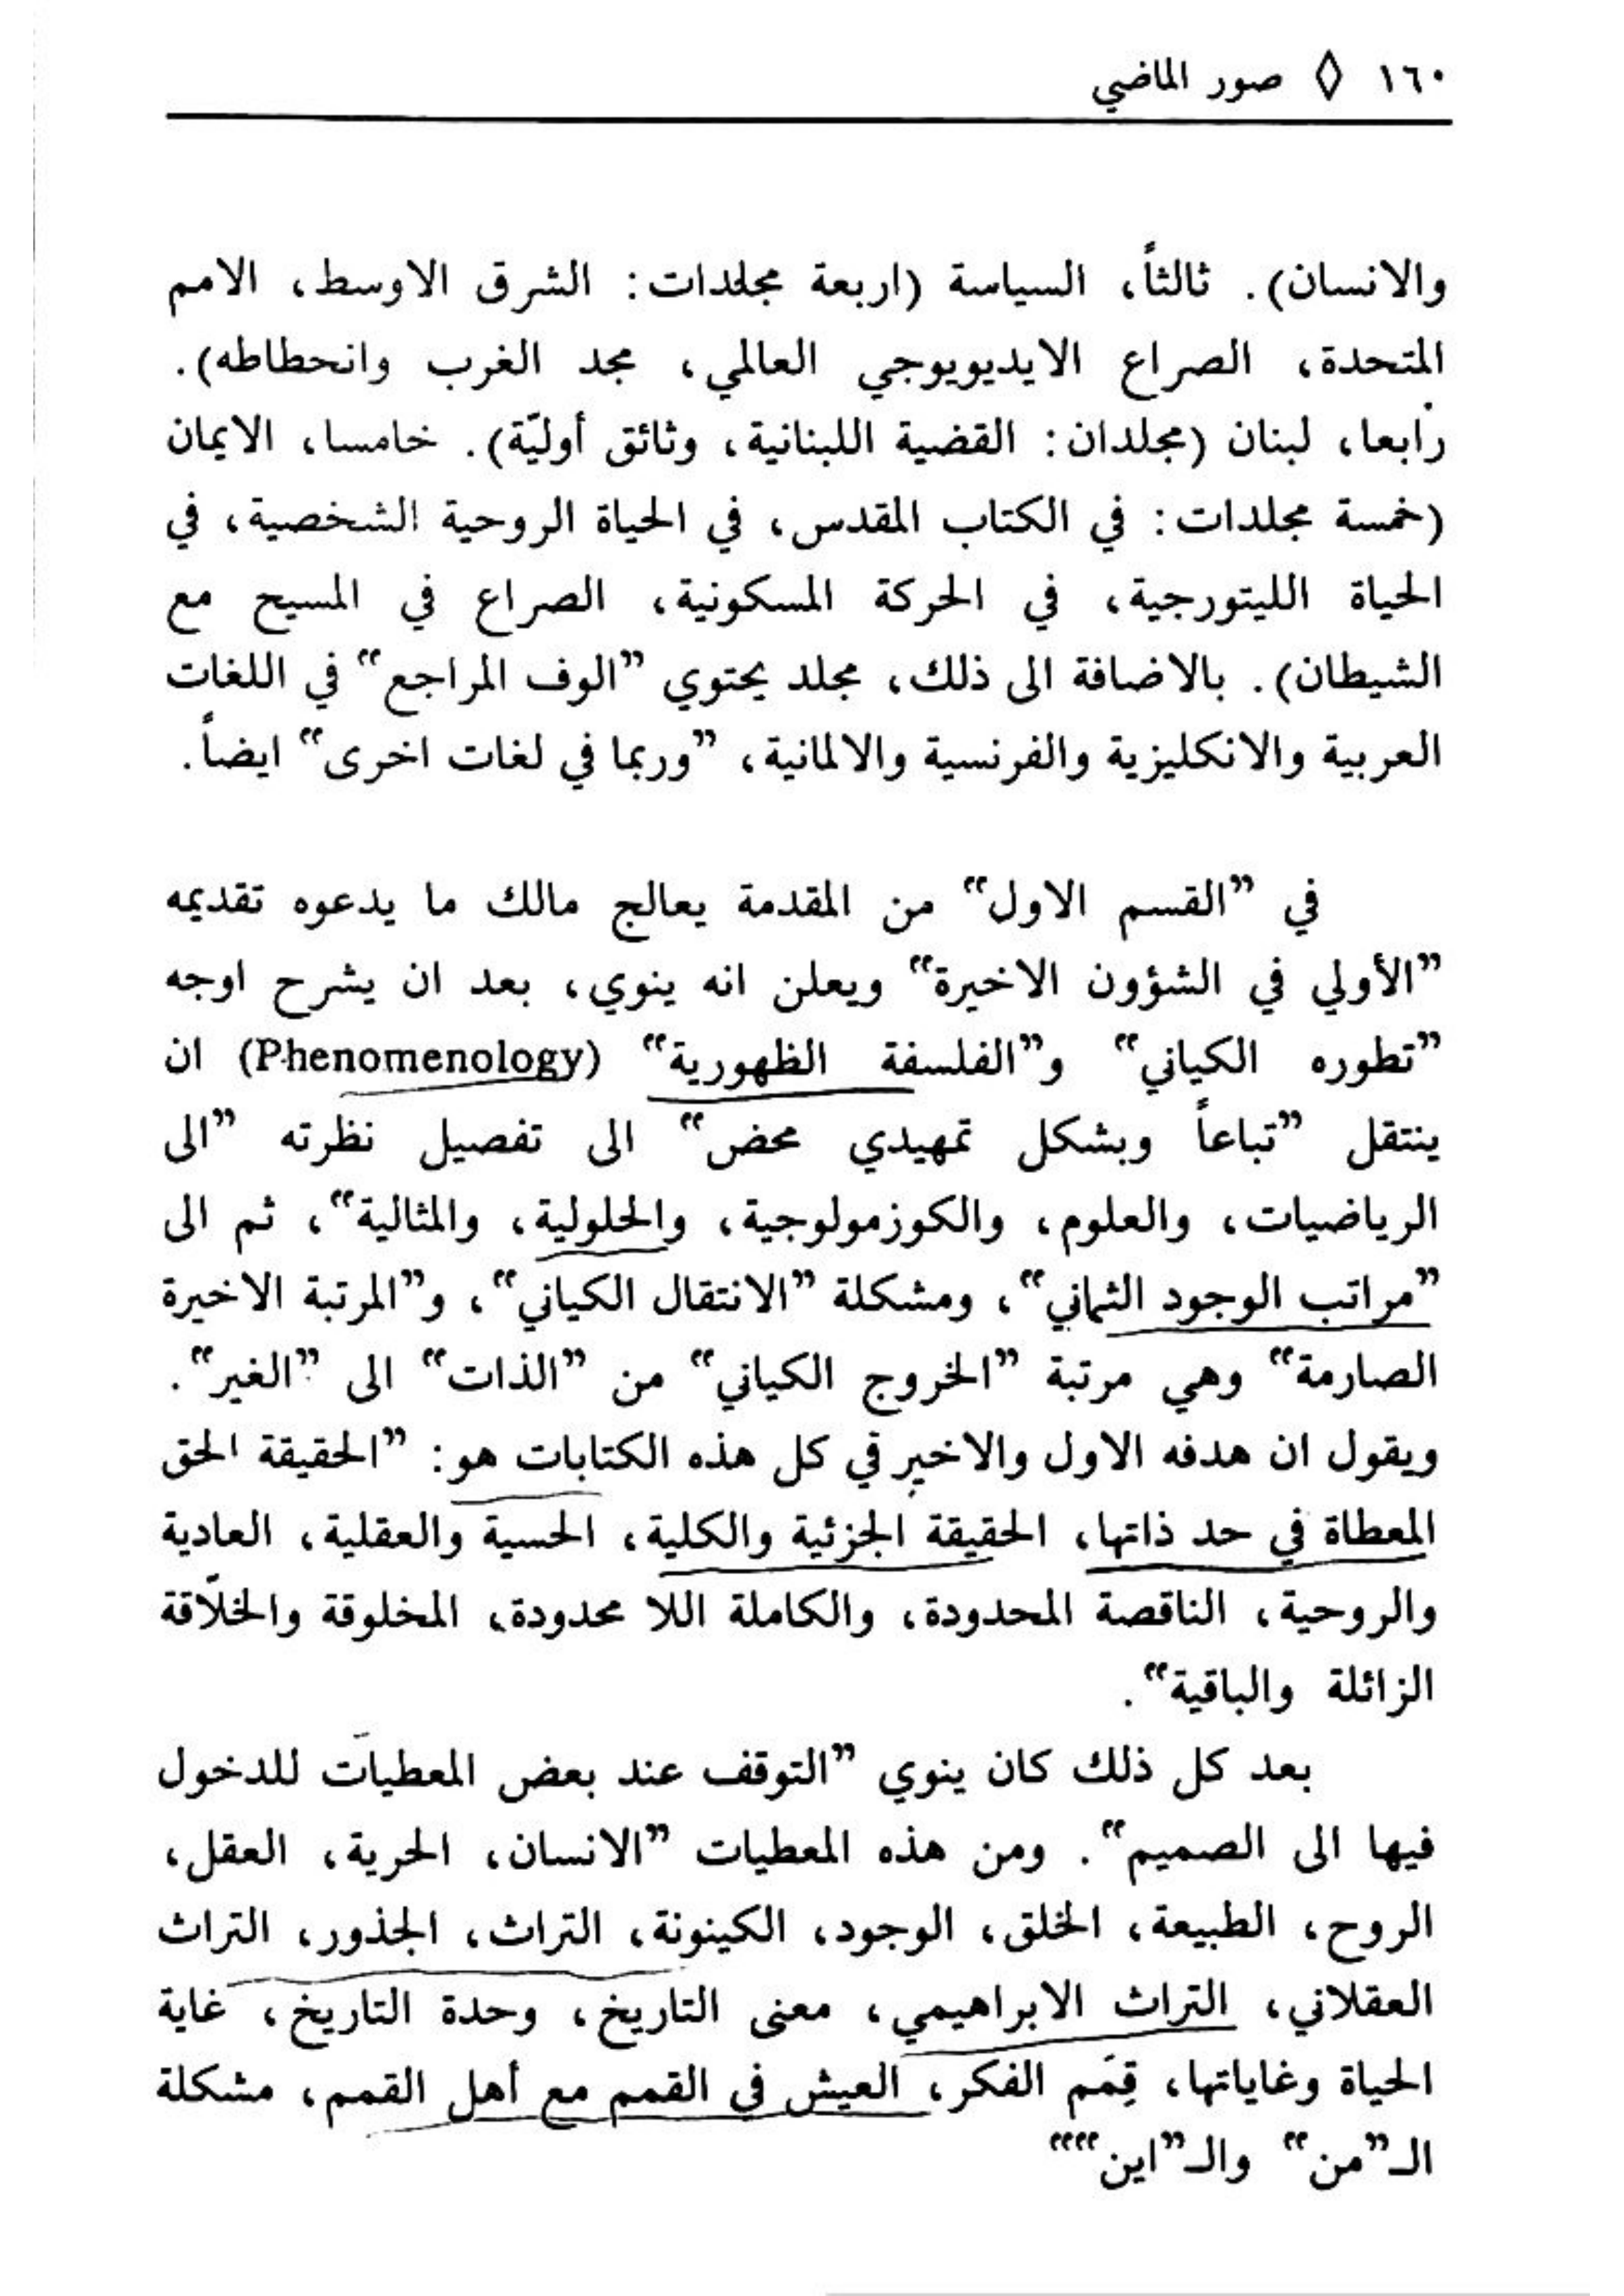 ١٦٠ ◊ صور الماضي
والانسان). ثالثاً، السياسة (اربعة مجلدات: الشرق الاوسط، الامم
المتحدة، الصراع الايديويوجي العالمي، مجد الغرب وانحطاطه).
رابعا، لبنان (مجلدان: القضية اللبنانية، وثائق أوليّة). خامسا، الايمان
(خمسة مجلدات: في الكتاب المقدس، في الحياة الروحية الشخصية، في
الحياة الليتورجية، في الحركة المسكونية، الصراع في المسيح مع
الشيطان). بالاضافة الى ذلك، مجلد يحتوي ”الوف المراجع“ في اللغات
العربية والانكليزية والفرنسية والالمانية، ”وربما في لغات اخرى“ ايضاً.
في ”القسم الاول“ من المقدمة يعالج مالك ما يدعوه تقديمه
”الأولي في الشؤون الاخيرة“ ويعلن انه ينوي، بعد ان يشرح اوجه
”تطوره الكياني“ و”الفلسفة الظهورية“ (Phenomenology) ان
ينتقل ”تباعاً وبشكل تمهيدي محض“ الى تفصيل نظرته ”الى
الرياضيات، والعلوم، والكوزمولوجية، والحلولية، والمثالية“، ثم الى
”مراتب الوجود الثماني“، ومشكلة ”الانتقال الكياني“، و”المرتبة الاخيرة
الصارمة“ وهي مرتبة ”الخروج الكياني“ من ”الذات“ الى ”الغير“.
ويقول ان هدفه الاول والاخير في كل هذه الكتابات هو: ”الحقيقة الحق
المعطاة في حد ذاتها، الحقيقة الجزئية والكلية، الحسية والعقلية، العادية
والروحية، الناقصة المحدودة، والكاملة اللا محدودة، المخلوقة والخلّاقة
الزائلة والباقية“.
بعد كل ذلك كان ينوي ”التوقف عند بعض المعطيات للدخول
فيها الى الصميم“. ومن هذه المعطيات ”الانسان، الحرية، العقل،
الروح، الطبيعة، الخلق، الوجود، الكينونة، التراث، الجذور، التراث
العقلاني، التراث الابراهيمي، معنى التاريخ، وحدة التاريخ، غاية
الحياة وغاياتها، قِمَم الفكر، العيش في القمم مع أهل القمم، مشكلة
الـ”من“ والـ”اين““